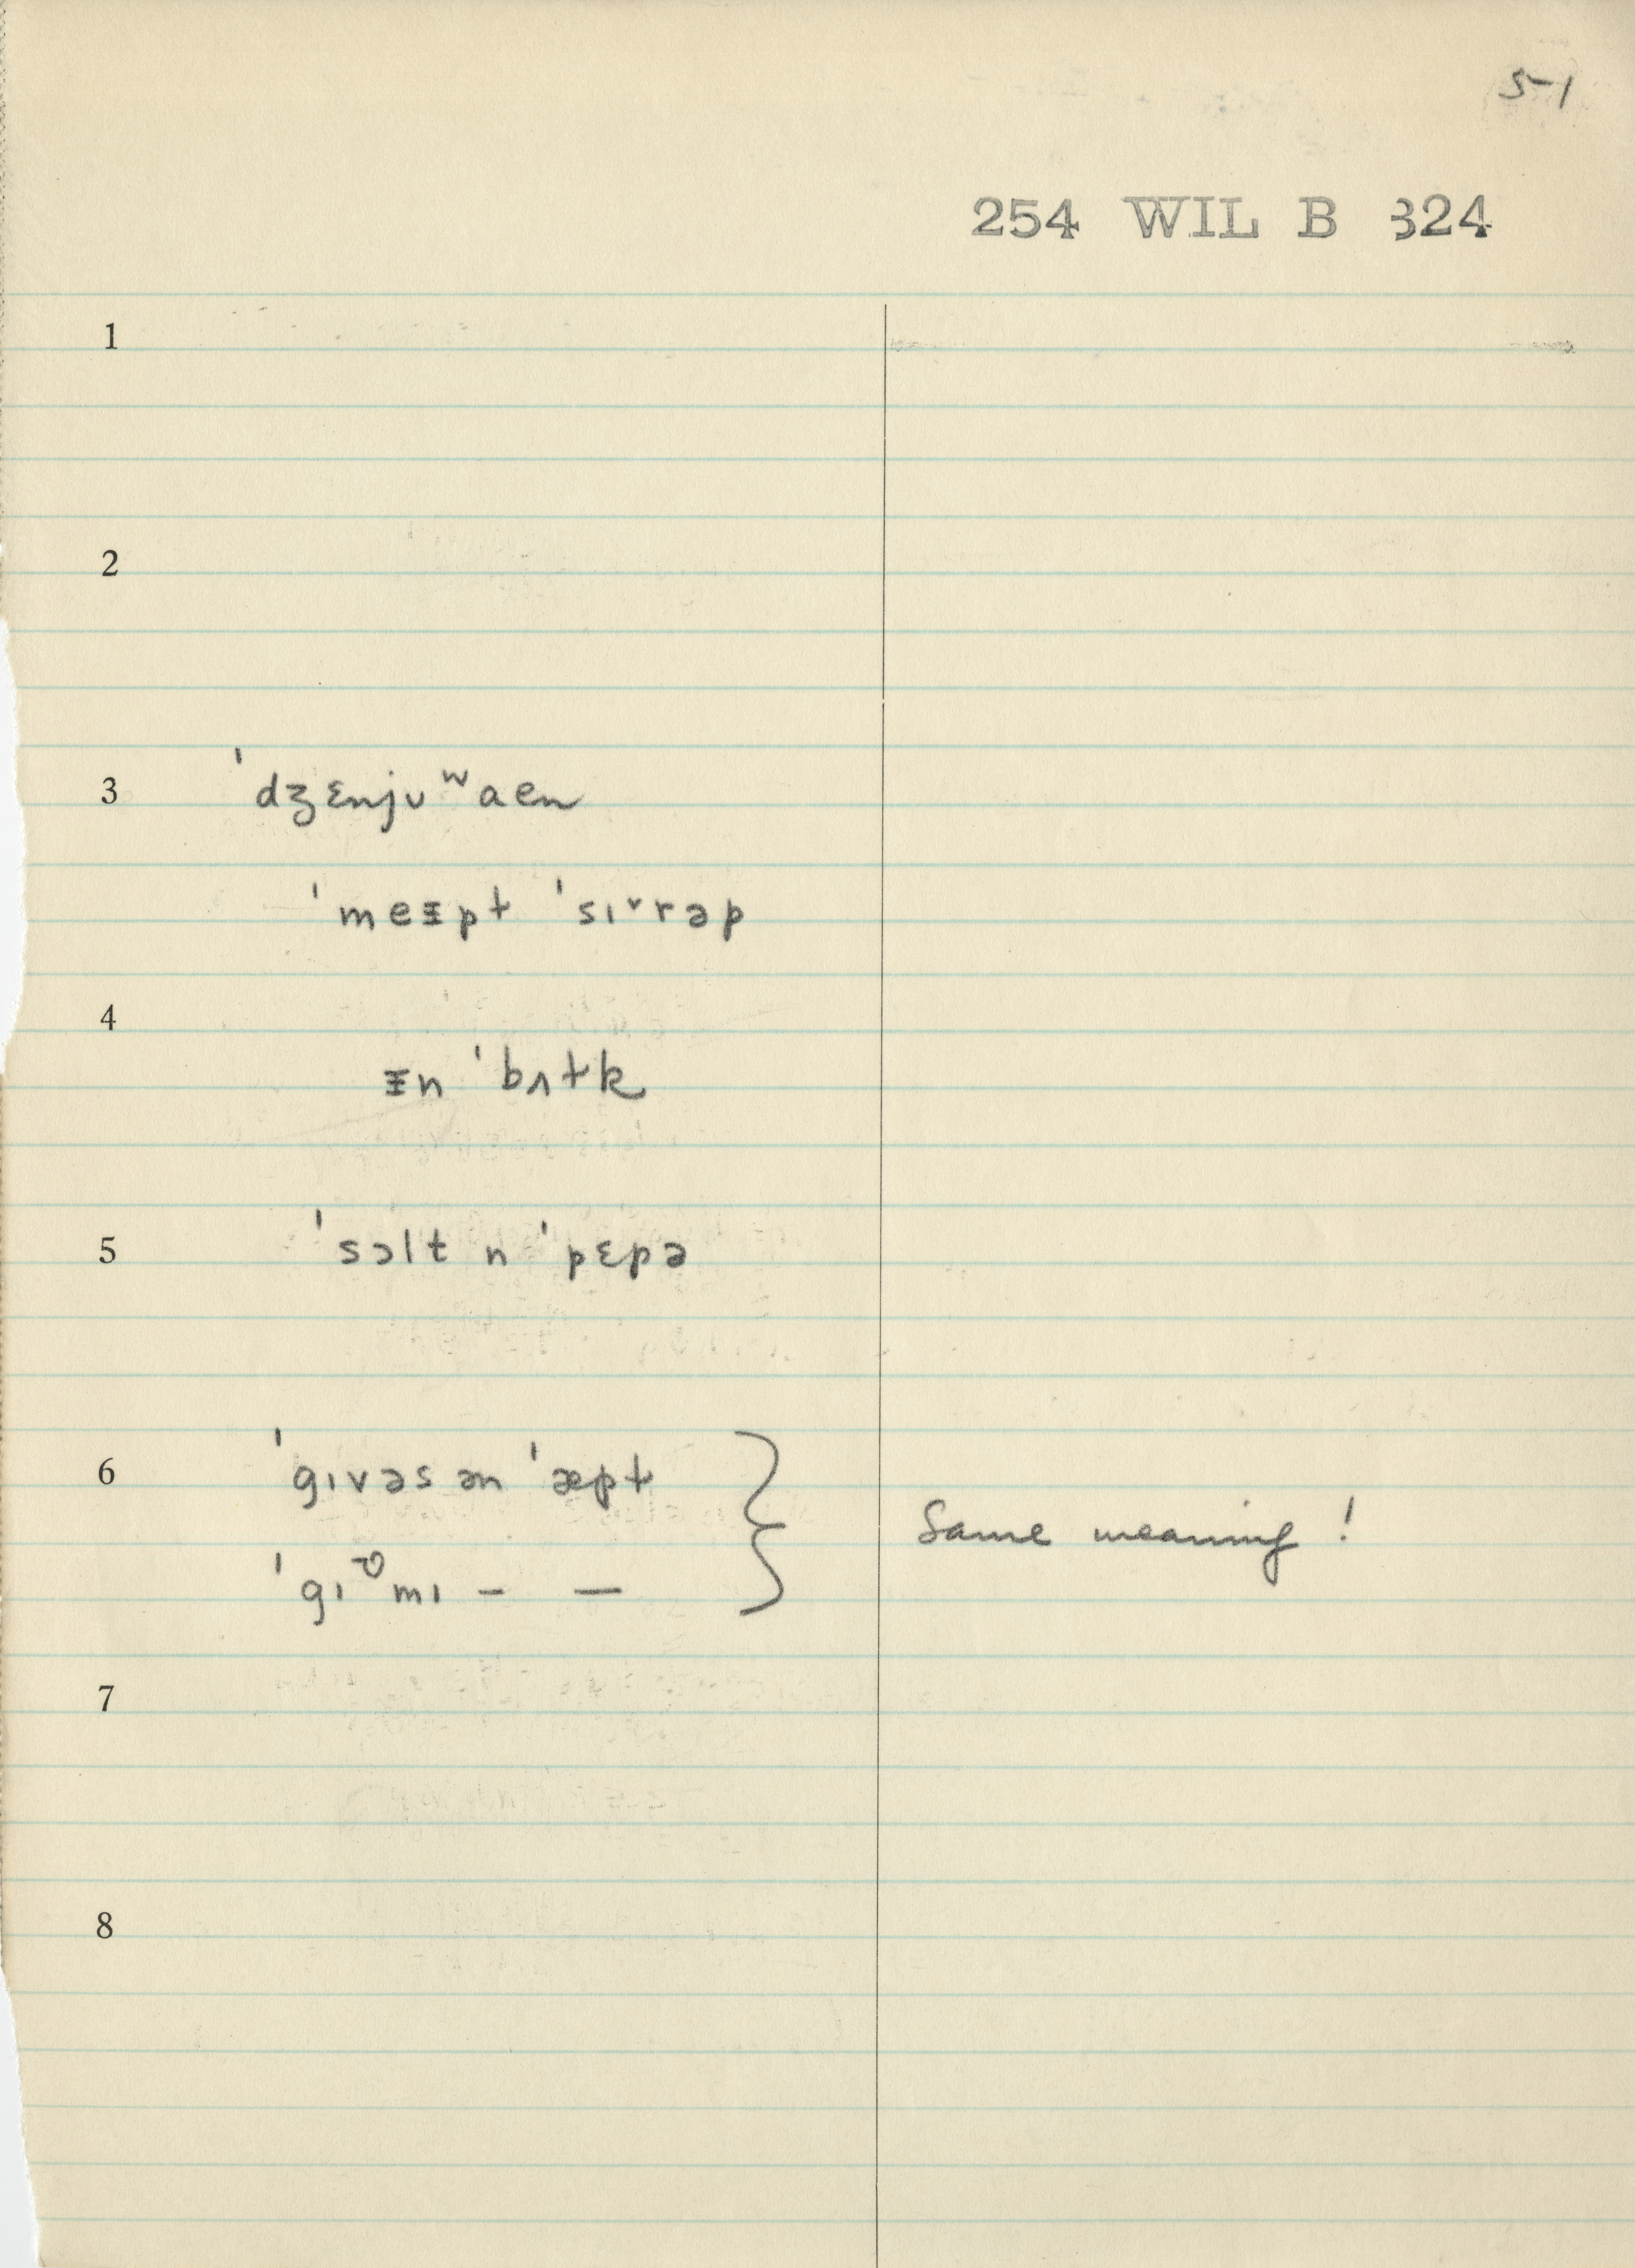 5-1
254 WIL B 324
1
2
3 ˈdʒɛnjʊʷaen
ˈmeᵻpɫ ˈsɪ˅rəp
4
ᵻn ˈbʌɫk
5 ˈsɔlt n ˈpɛpə
6 ˈgɪvəs ən ˈæpɫ
same meaning!
ˈgɪ mɪ – –
7
8